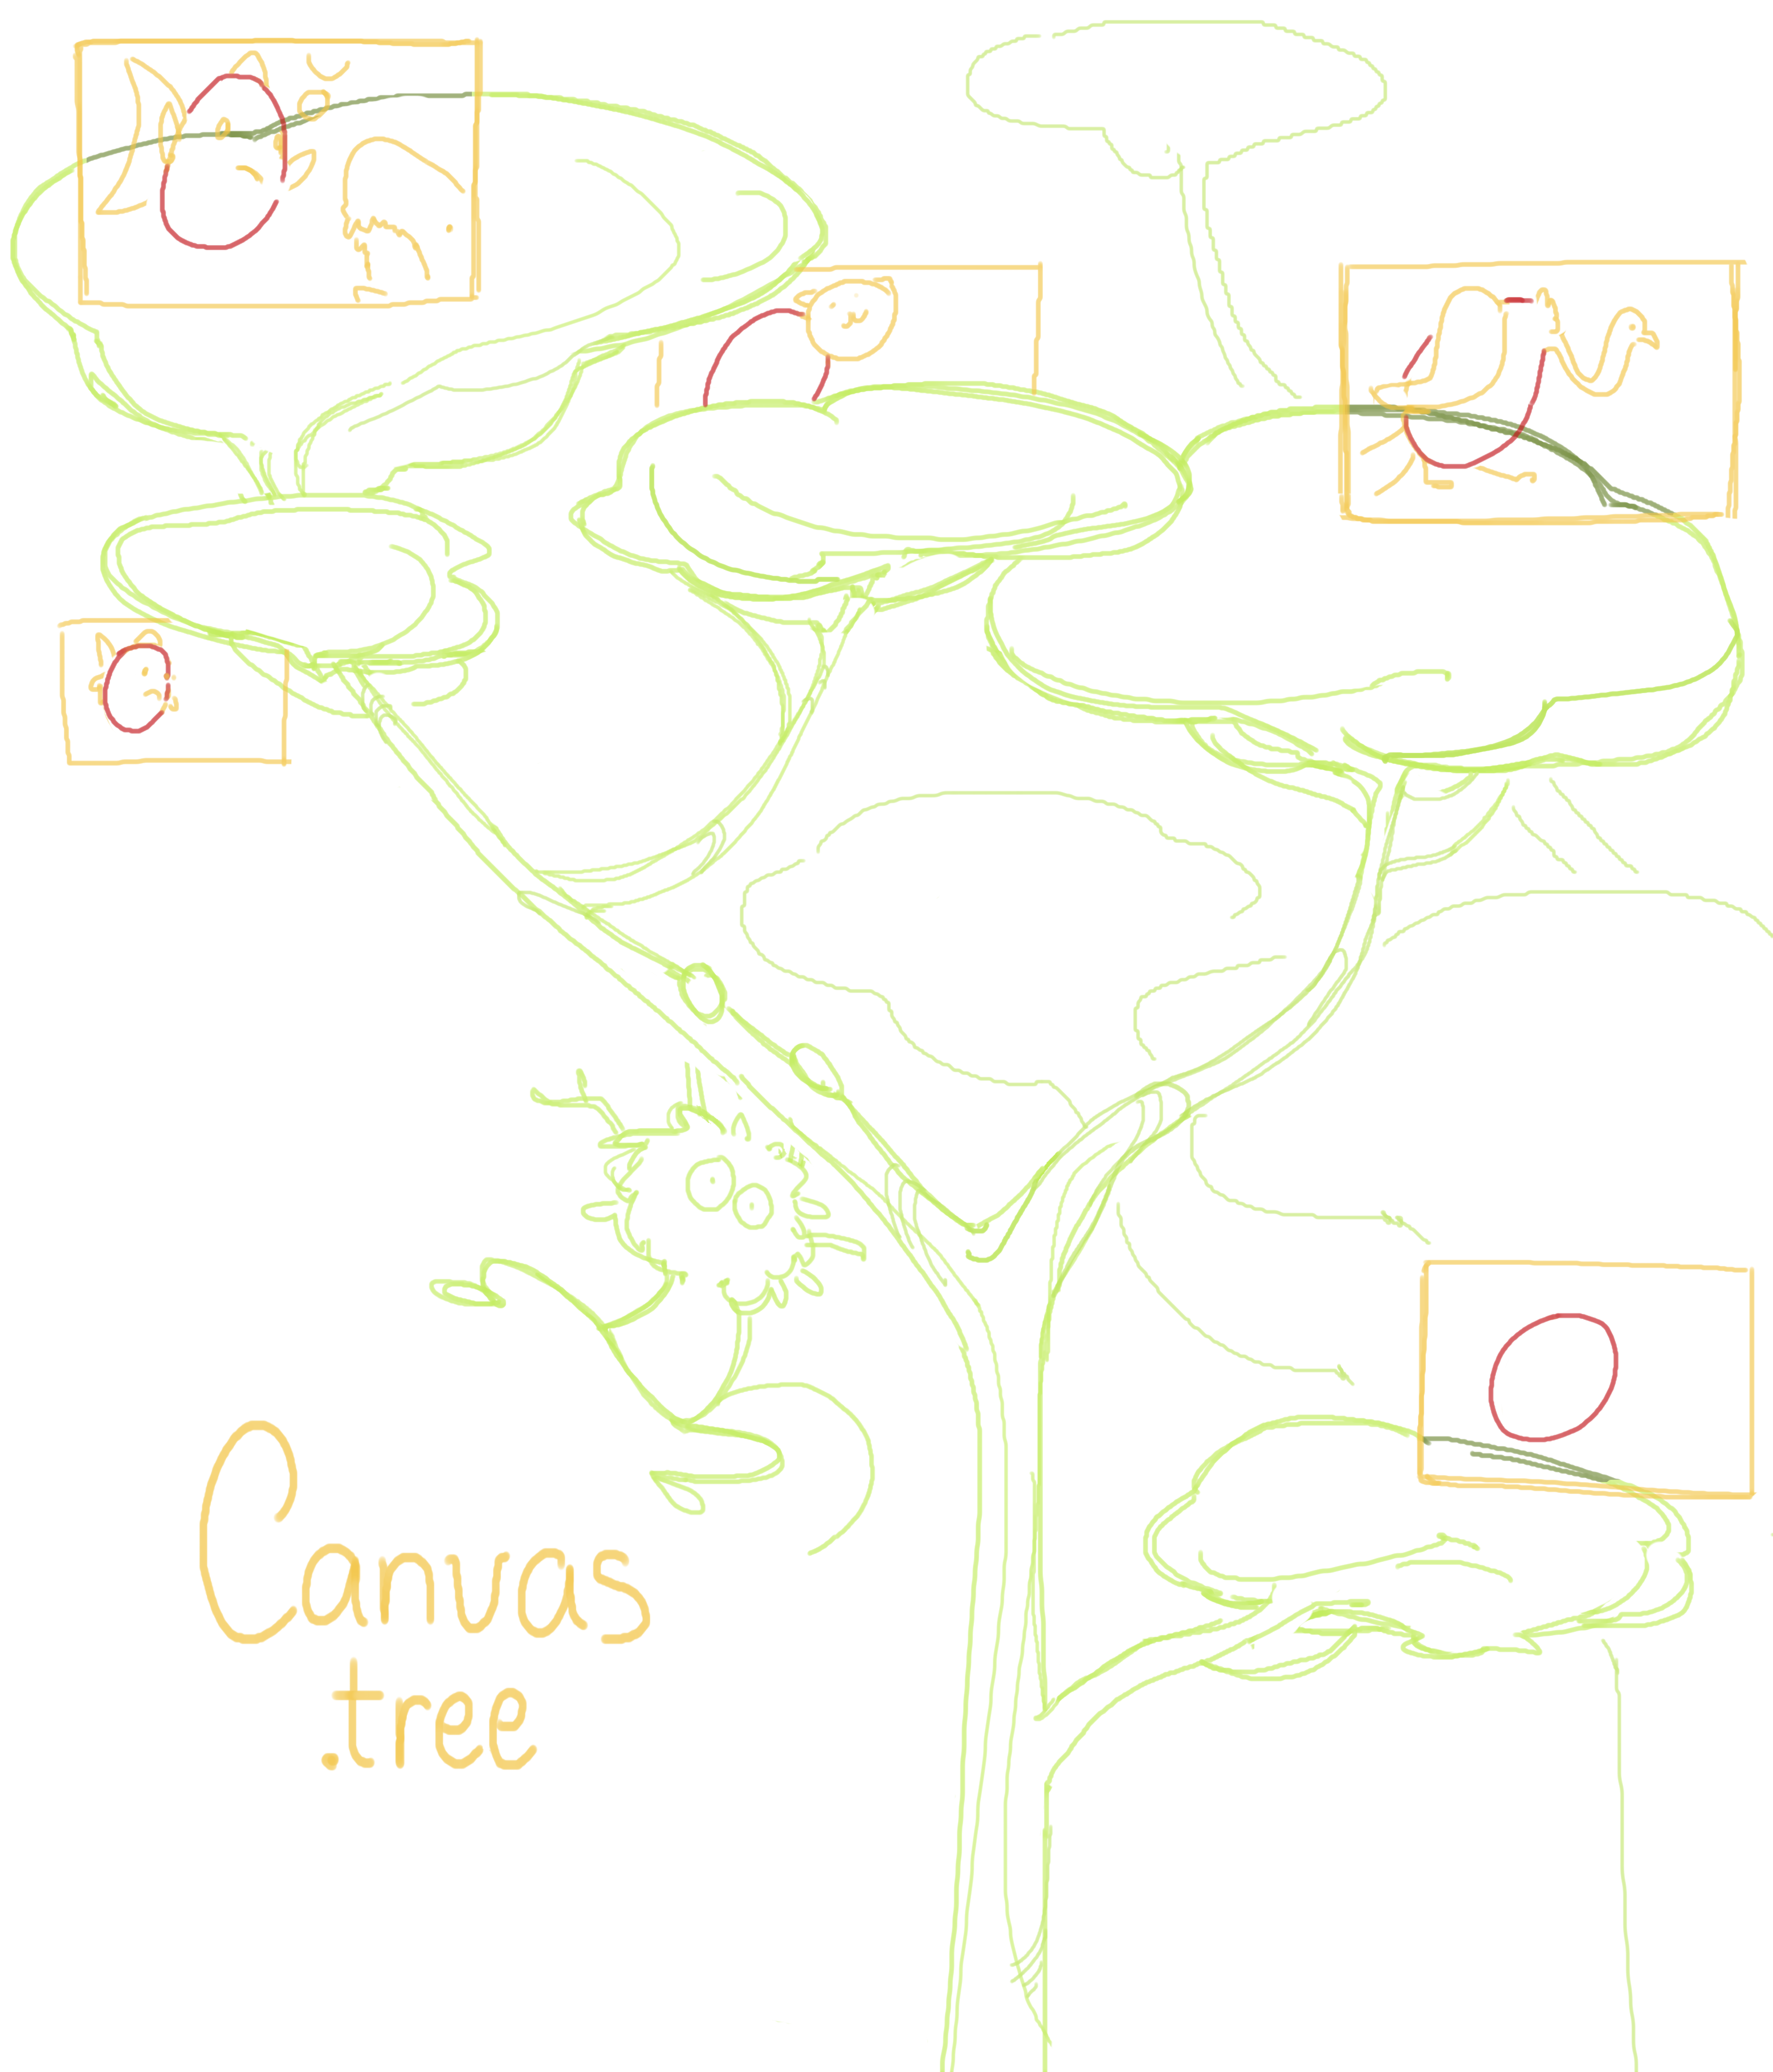 Canvas
.tree